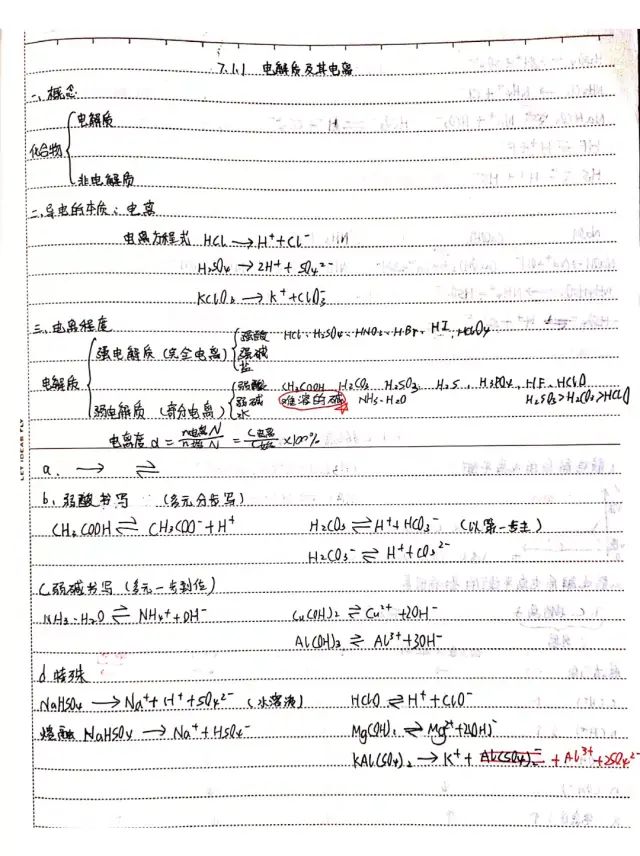 7.1.1 电解质及其电离
一、概念
化合物 { 电解质
非电解质
二、导电的本质：电离
电离方程式 HCl → H⁺+Cl⁻
H₂SO₄ → 2H⁺+SO₄²⁻
KClO₃ → K⁺+ClO₃⁻
三、电离程度
电解质 { 强电解质（完全电离） { 强酸 HCl、H₂SO₄、HNO₃、HBr、HI、HClO₄
强碱
盐
弱电解质（部分电离） { 弱酸 CH₃COOH H₂CO₃ H₂SO₃ H₂S、H₃PO₄、HF、HClO
弱碱 难溶的碱 NH₃·H₂O H₂SO₃>H₂CO₃>HClO
水
电离度 α = n电离 N / n始 N = C电离 / C始 ×100%
LET IDEAS FLY
a. → ⇌
b. 弱酸书写 （多元分步写）
CH₃COOH ⇌ CH₃COO⁻+H⁺ H₂CO₃ ⇌ H⁺+HCO₃⁻ （以第一步主）
H₂CO₃⁻ ⇌ H⁺+CO₃²⁻
C. 弱碱书写（多元一步到位）
NH₃·H₂O ⇌ NH₄⁺+OH⁻ Cu(OH)₂ ⇌ Cu²⁺+2OH⁻
Al(OH)₃ ⇌ Al³⁺+3OH⁻
d 特殊
NaHSO₄ → Na⁺+H⁺+SO₄²⁻（水溶液） HClO ⇌ H⁺+ClO⁻
熔融 NaHSO₄ → Na⁺+HSO₄⁻ Mg(OH)₂ ⇌ Mg²⁺+2(OH)⁻
KAl(SO₄)₂ → K⁺+Al(SO₄)₂⁻ +Al³⁺+2SO₄²⁻